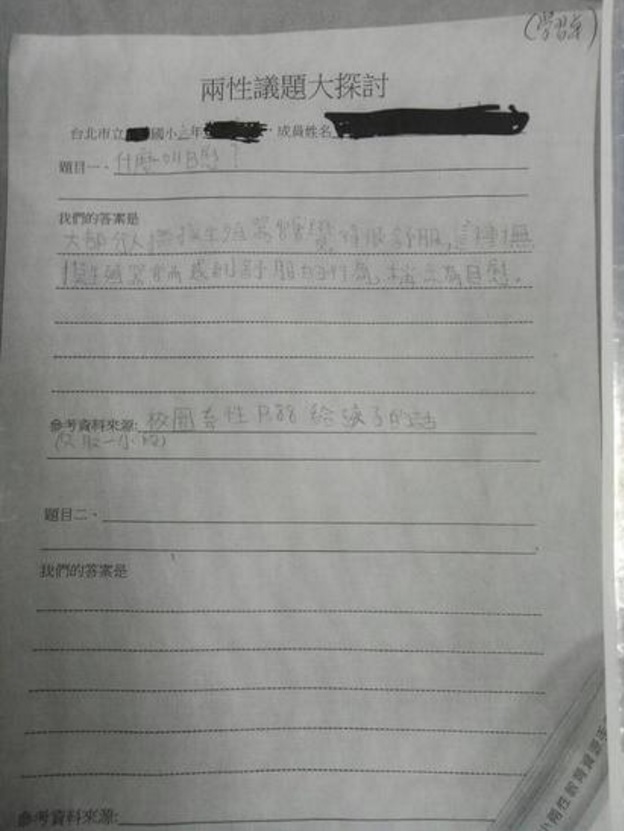 (學習單)
兩性議題大探討
台北市立 國小 年 成員姓名
題目一、什麼叫自慰?
我們的答案是
大部分人撫摸生殖器時會覺得很舒服,這種撫
摸生殖器官而感到舒服的行為,稱之為自慰。
參考資料來源:校園 性 給孩子的話
題目二、
我們的答案是
參考資料來源: